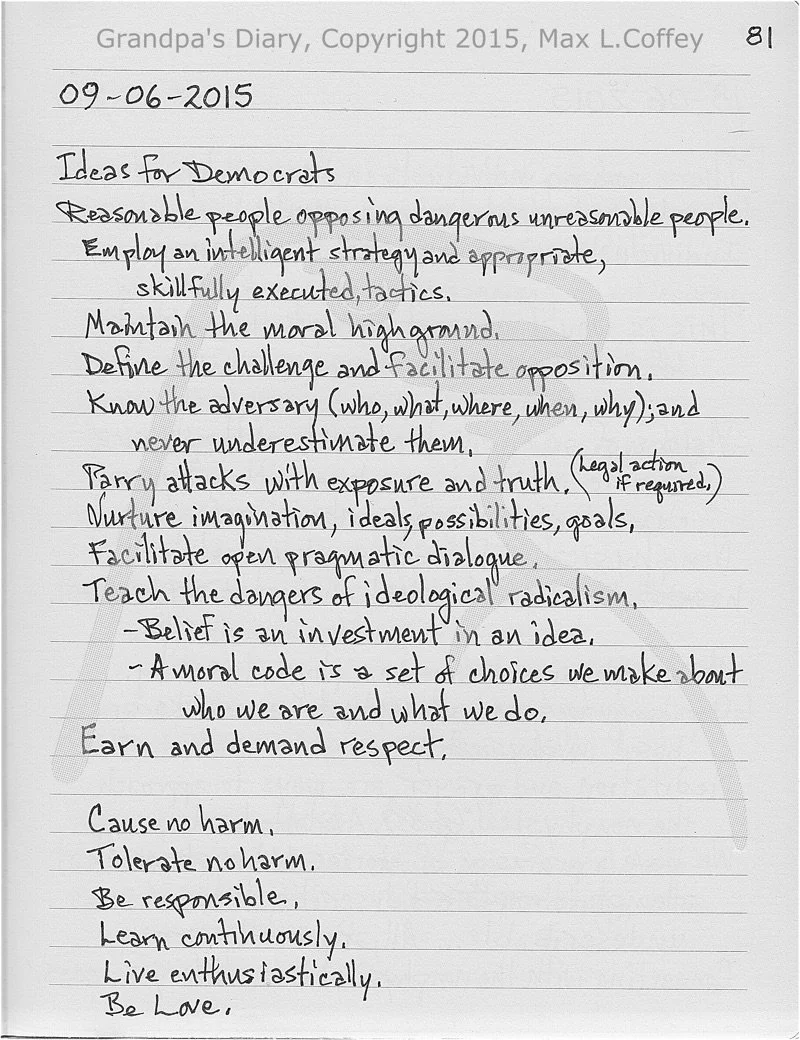 Grandpa's Diary, Copyright 2015, Max L.Coffey
81
09-06-2015
Ideas for Democrats
Reasonable people opposing dangerous unreasonable people.
Employ an intelligent strategy and appropriate,
skillfully executed, tactics.
Maintain the moral high ground.
Define the challenge and facilitate opposition.
Know the adversary (who, what, where, when, why); and
never underestimate them.
Parry attacks with exposure and truth. (Legal action
if required.)
Nurture imagination, ideals, possibilities, goals.
Facilitate open pragmatic dialogue.
Teach the dangers of ideological radicalism.
- Belief is an investment in an idea.
- A moral code is a set of choices we make about
who we are and what we do.
Earn and demand respect.
Cause no harm.
Tolerate no harm.
Be responsible.
Learn continuously.
Live enthusiastically.
Be Love.